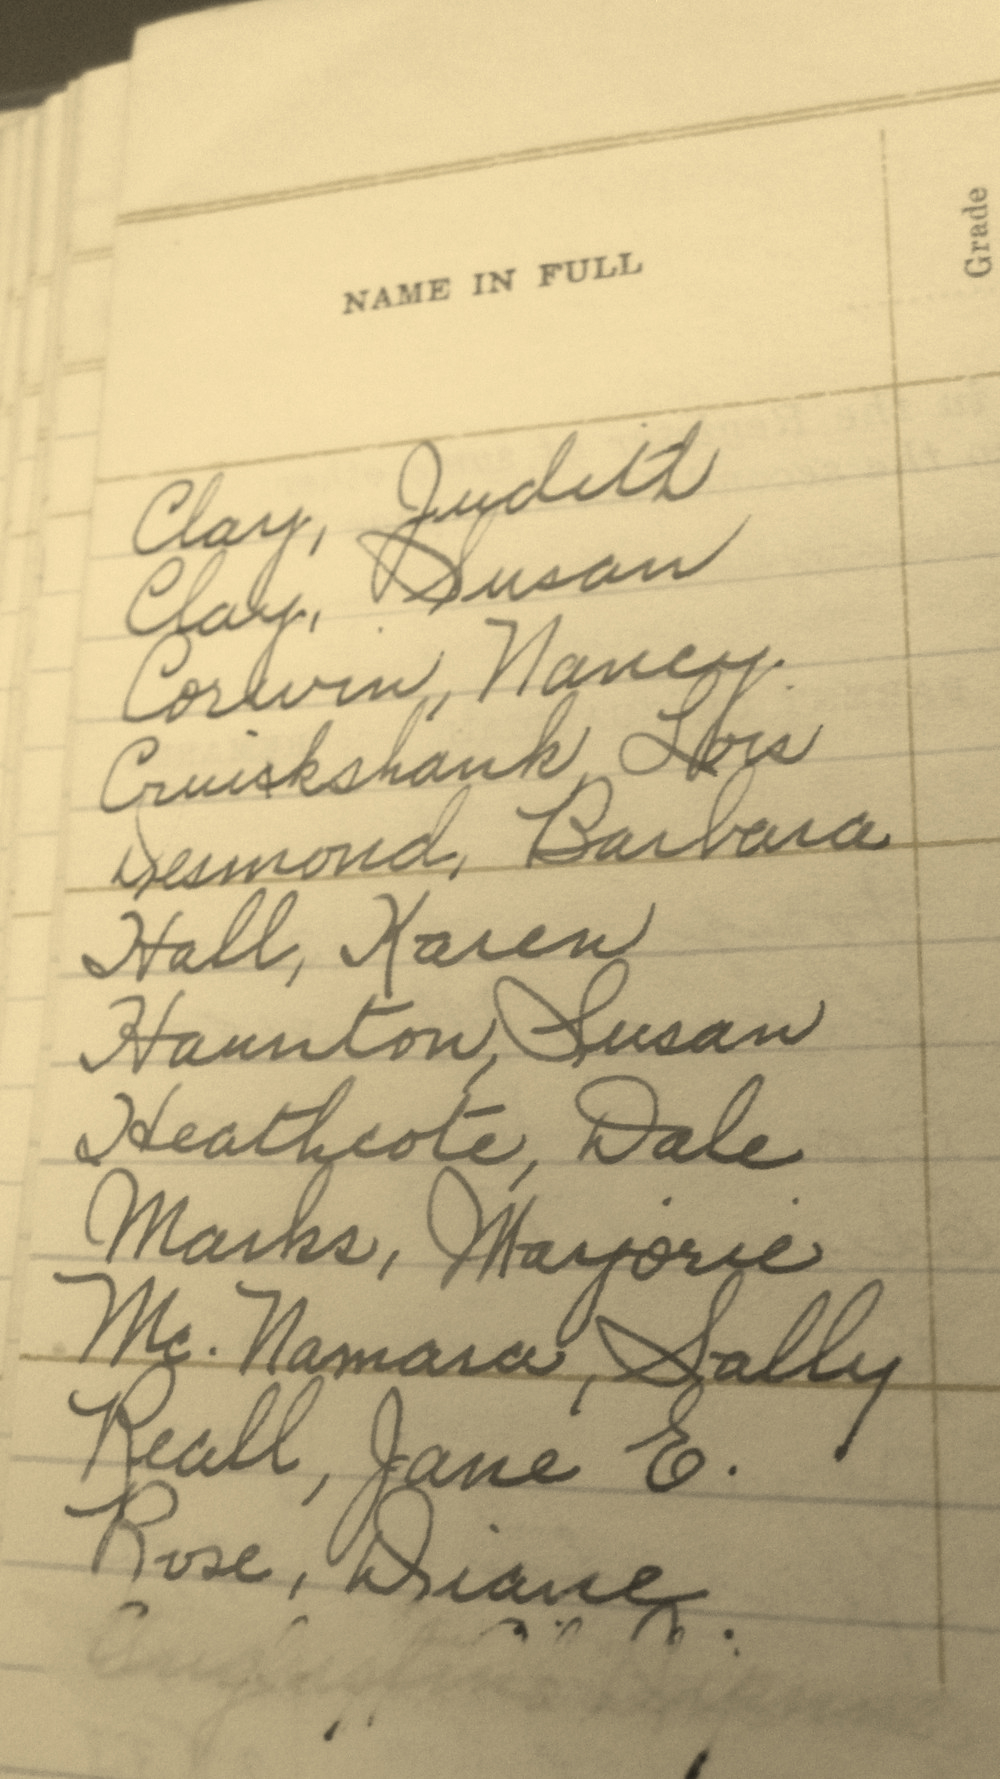 NAME IN FULL
Grade
Clay, Judith
Clay, Susan
Corwin, Nancy.
Cruickshank, Lois
Desmond, Barbara
Hall, Karen
Haunton, Susan
Heathcote, Dale
Marks, Marjorie
Mc. Namara, Sally
Reall, Jane E.
Rose, Diane